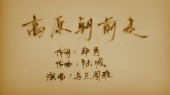 高原朝前走
作词：郑勇
作曲：陆城
演唱：乌兰图雅